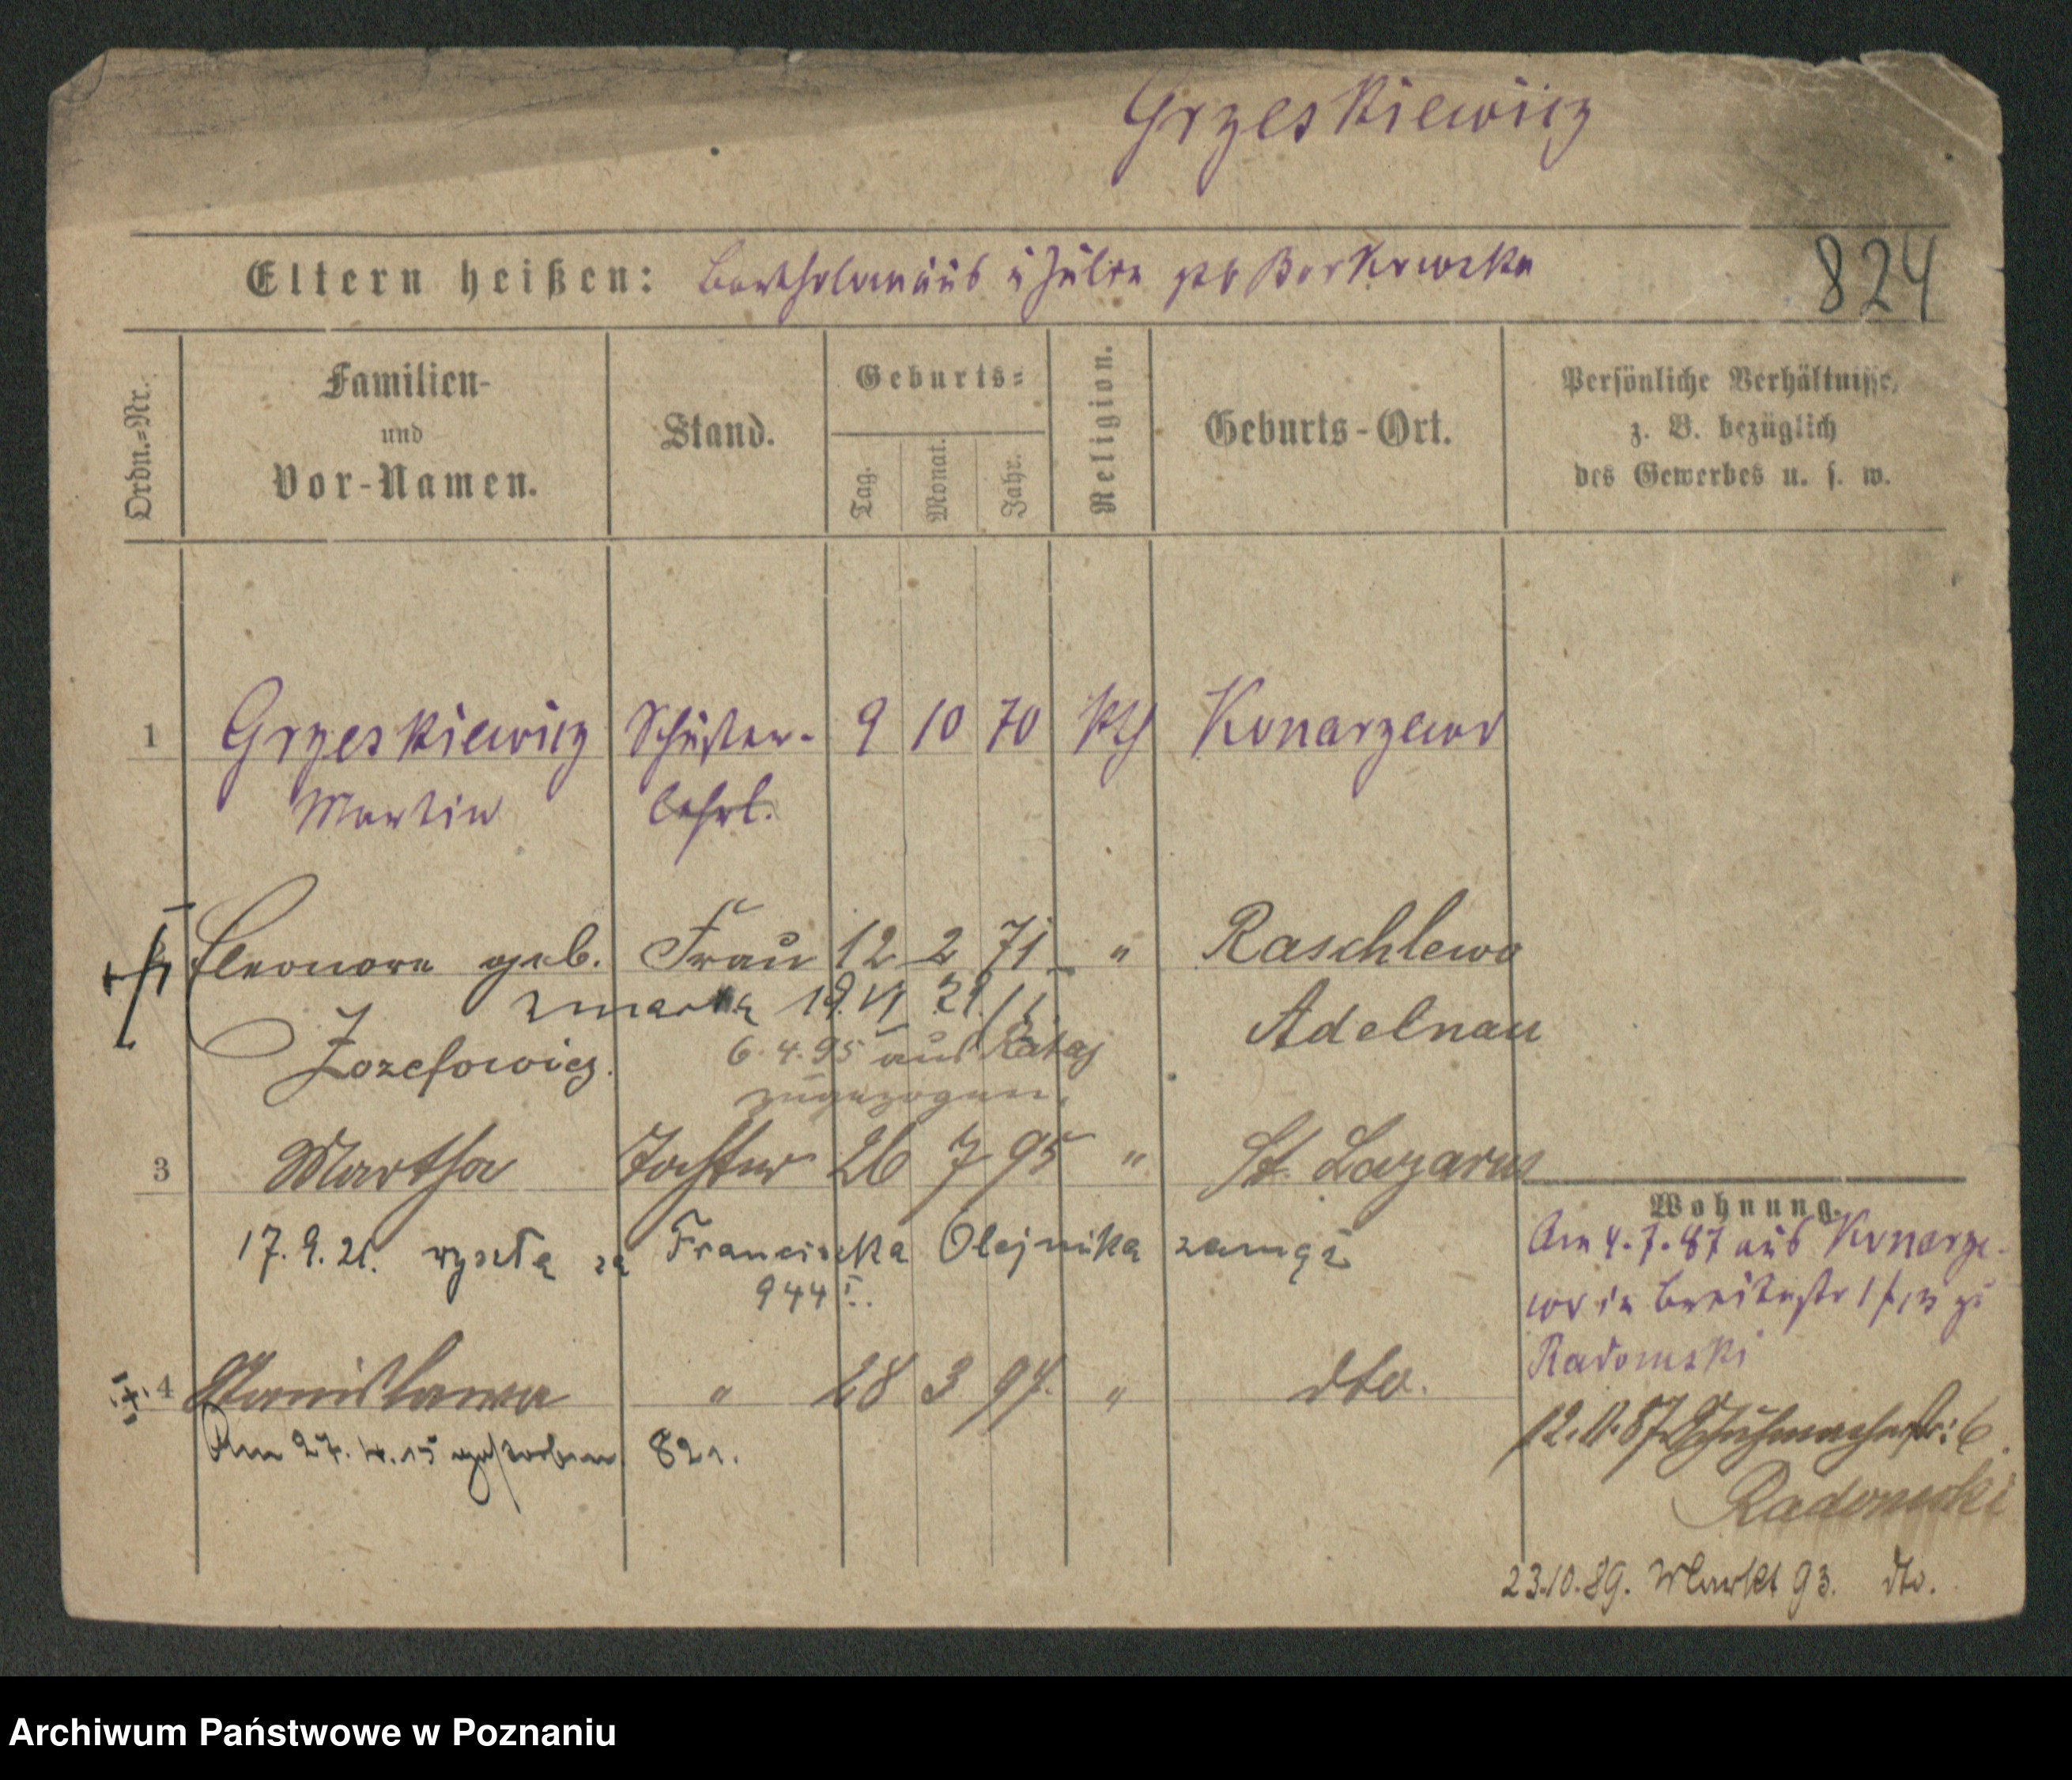 Grzeskiewicz
Eltern heißen: Bartholomäus u Julia geb Borkowska
824
Ordn.=Nr.
Familien-
und
Vor-Namen.
Stand.
Geburts=
Tag.
Monat.
Jahr.
Religion.
Geburts-Ort.
Persönliche Verhältnisse,
z. B. bezüglich
des Gewerbes u. s. w.
1 Grzeskiewicz Schuster- 9 10 70 kth Konarzewo
Martin lehrl.
Eleonora geb. Frau 12 2 71 " Raschkewo
zmarła
Jozefowicz. 6.4.95 aus Adelnau
zugezogen.
3 Martha Tochter 26 7 95 " St. Lazarus
17.9.21. wyszła za Franciszka Olejnika zamąż
944 I.
4 Stanislawa " 28 3 97. " dto.
Am 27. 4. 15 gestorben 821.
Wohnung.
Am 4.7.87 aus Konarze-
wo in Breitestr zu
Radomski
87 Schuhmacherstr: 6.
Radomski
23.10.89. Markt 93. dto.
Archiwum Państwowe w Poznaniu